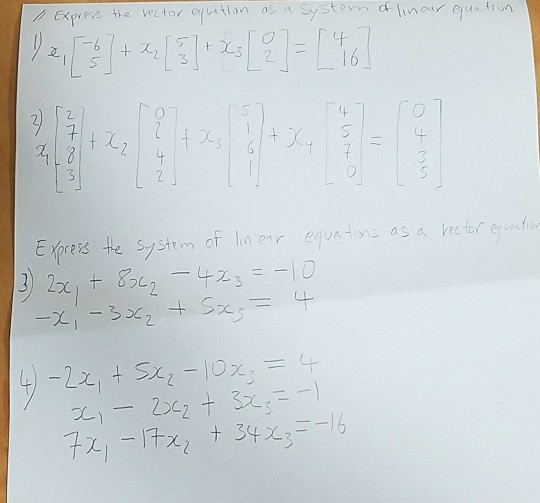 // Express the vector equation as a system of linear equation
1) x₁ [-6 5] + x₂ [5 3] + x₃ [0 2] = [4 16]
2) x₁ [2 7 8 3] + x₂ [0 2 4 2] + x₃ [5 1 6 1] + x₄ [4 5 7 0] = [0 4 3 5]
Express the system of linear equations as a vector equation
3) 2x₁ + 8x₂ - 4x₃ = -10
-x₁ - 3x₂ + 5x₃ = 4
4) -2x₁ + 5x₂ - 10x₃ = 4
x₁ - 2x₂ + 3x₃ = -1
7x₁ - 17x₂ + 34x₃ = -16